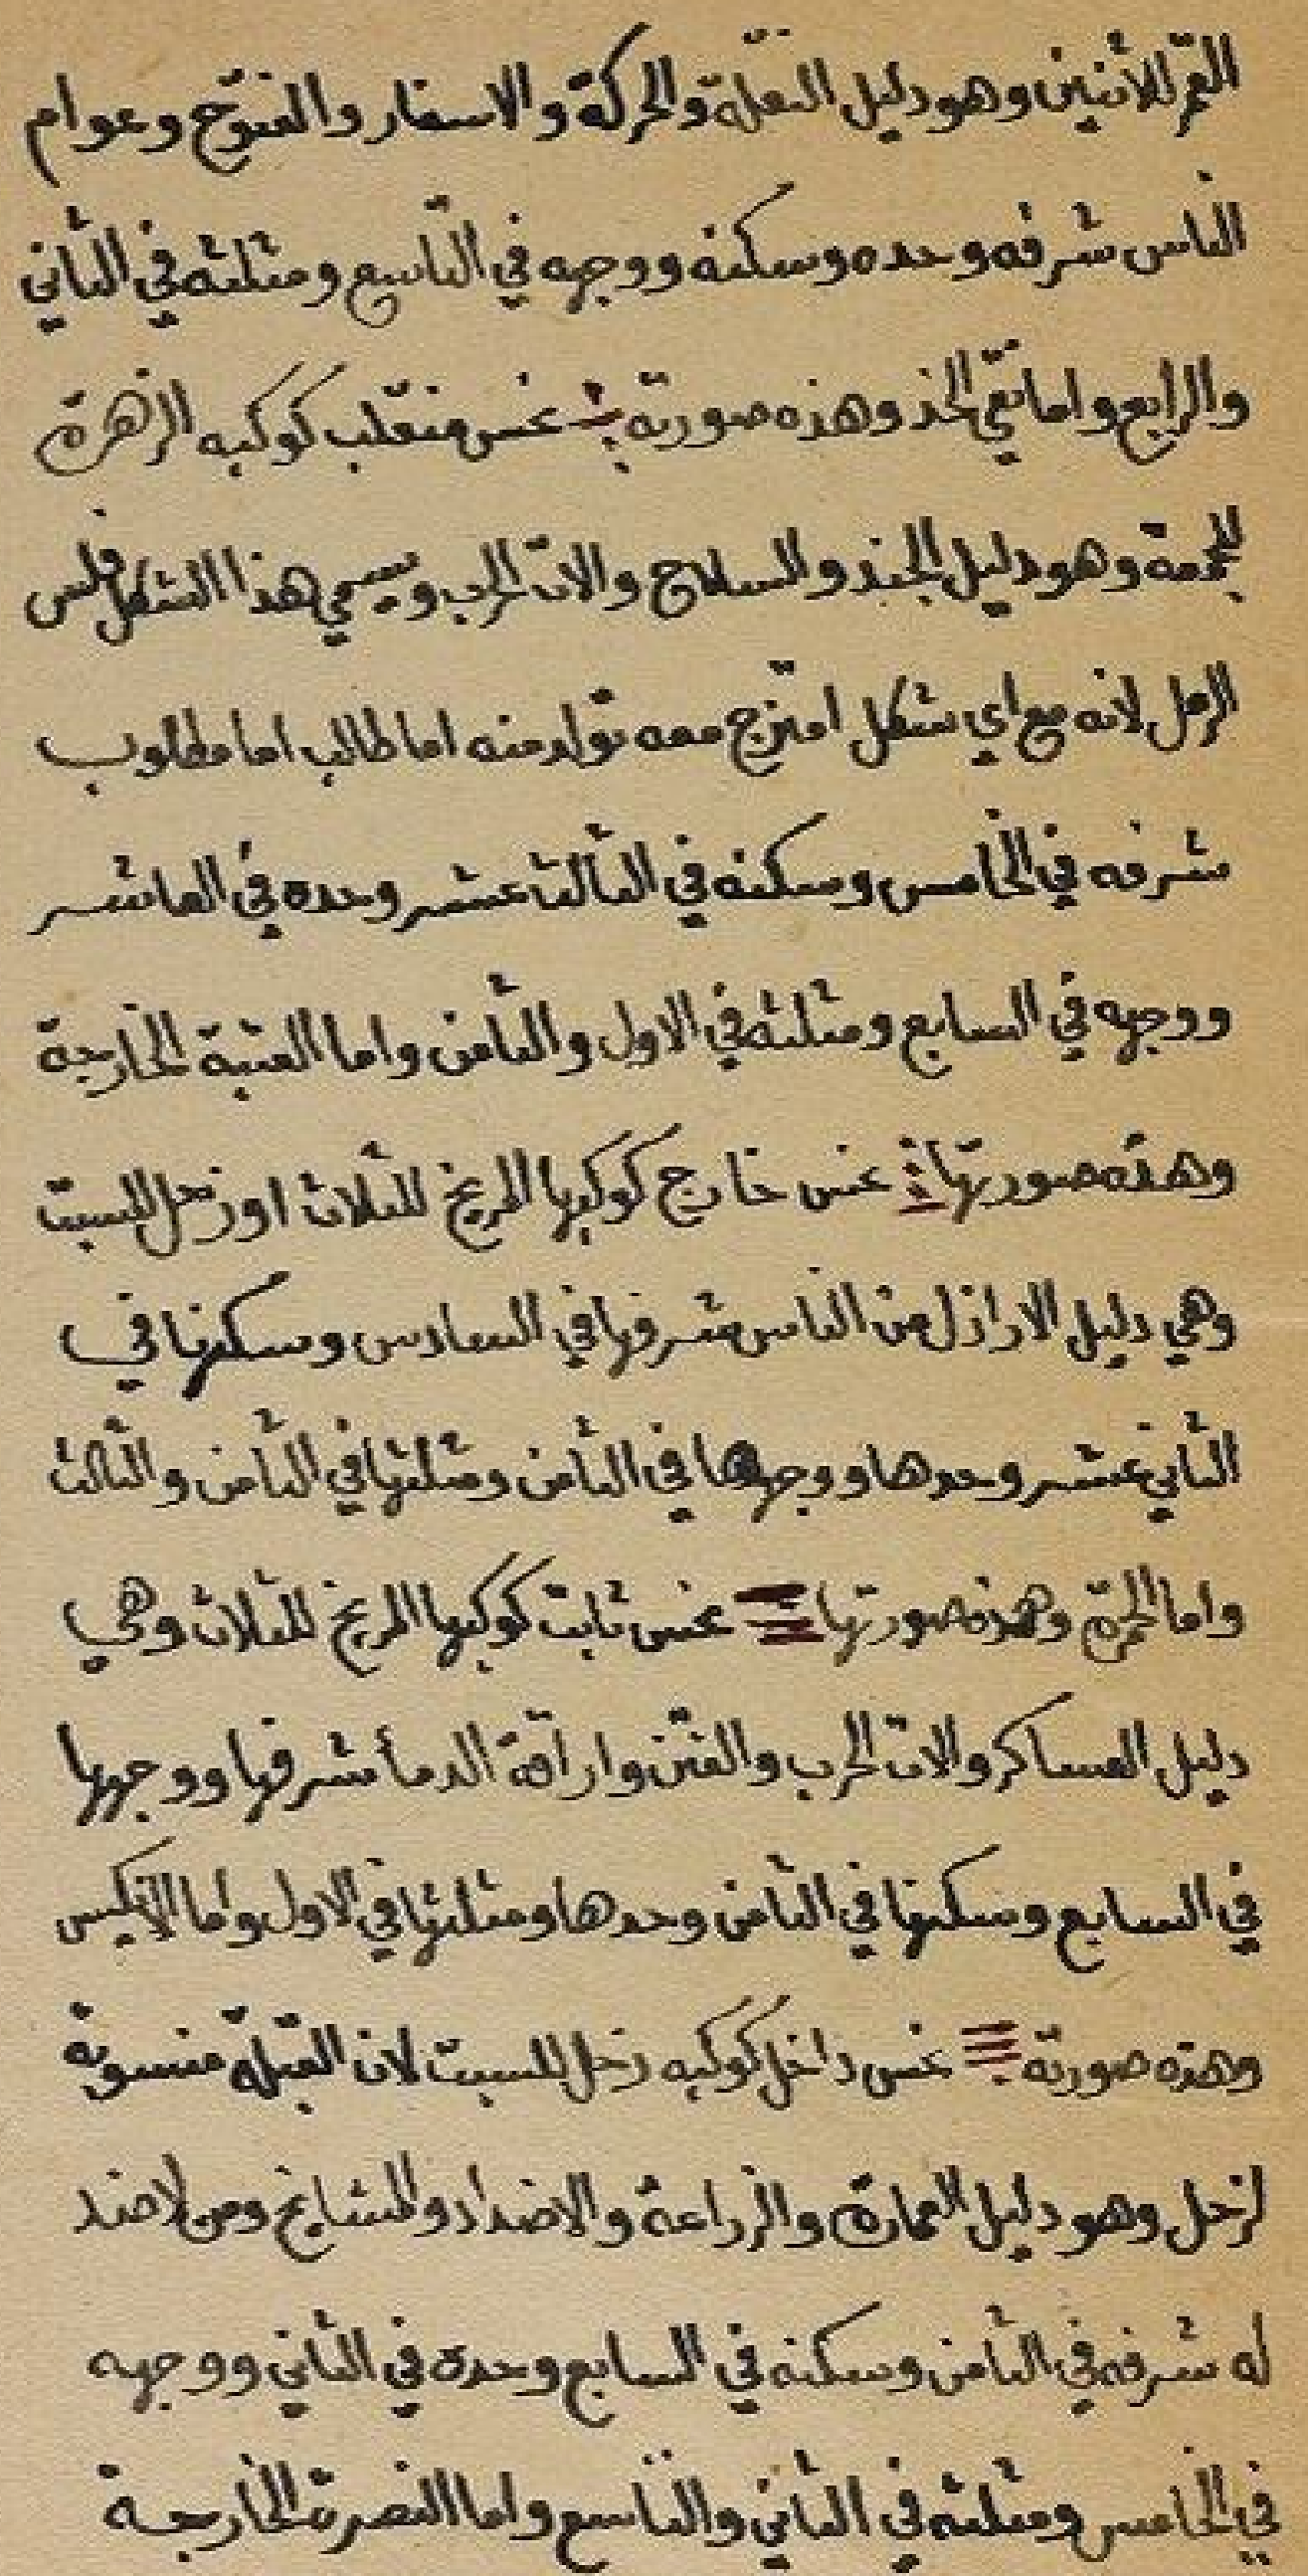 القمر للاثنين وهو دليل النقلة والحركة والاسفار والفتوح وعوام
الناس شرفه وحده وسكنه ووجهه في التاسع ومثلثه في الثاني
والرابع واما نقي الخد وهذه صورته نحس منقلب كوكبه الزهرة
للجمعة وهو دليل الجند والسلاح والات الحرب ويسمي هذا الشكل فلس
الرمل لانه مع اي شكل امتزج معه تولد منه اما طالب اما مطلوب
شرفه في الخامس وسكنه في الثالث عشر وحده في العاشر
ووجهه في السابع ومثلثه في الاول والثامن واما العتبة الخارجة
وهذه صورتها نحس خارج كوكبها المريخ للثلاث او زحل للسبت
وهي دليل الاراذل من الناس شرفها في السادس وسكنها في
الثاني عشر وحدها ووجهها في الثامن ومثلثها في الثامن والثالث
واما الحمرة وهذه صورتها نحس ثابت كوكبها المريخ للثلاث وهي
دليل العساكر والات الحرب والفتن واراقة الدمأ شرفها ووجهها
في السابع وسكنها في الثامن وحدها ومثلثها في الاول واما الانكيس
وهذه صورته نحس داخل كوكبه زحل للسبت لان القبلة منسوبة
لزحل وهو دليل العمارة والزراعة والاضداد والمشايخ ومن لا ضد
له شرفه في الثامن وسكنه في السابع وحده في الثاني ووجهه
في الخامس ومثلثه في الثاني والتاسع واما النصرة الخارجة